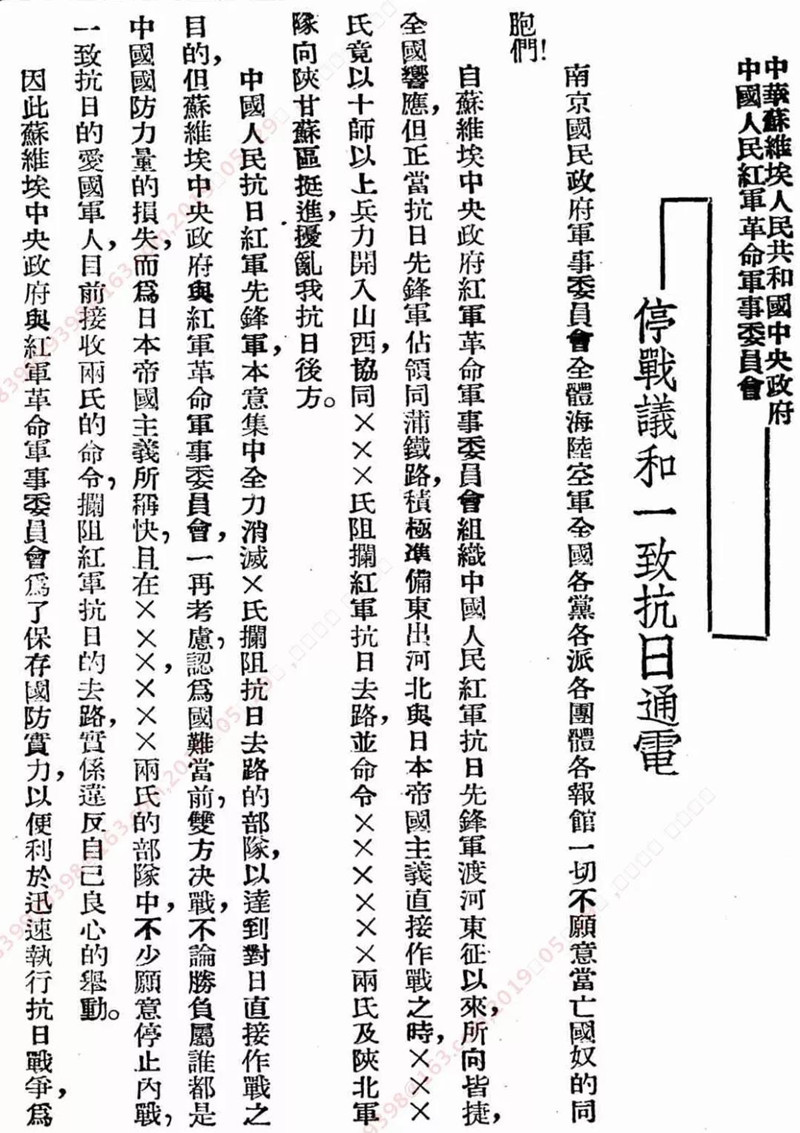 中華蘇維埃人民共和國中央政府
中國人民紅軍革命軍事委員會
停戰議和一致抗日通電
南京國民政府軍事委員會全體海陸空軍全國各黨各派各團體各報館一切不願意當亡國奴的同
胞們!
自蘇維埃中央政府紅軍革命軍事委員會組織中國人民紅軍抗日先鋒軍渡河東征以來,所向皆捷,
全國響應,但正當抗日先鋒軍佔領同蒲鐵路,積極準備東出河北與日本帝國主義直接作戰之時,×××
氏竟以十師以上兵力開入山西,協同×××氏阻攔紅軍抗日去路,並命令××××××兩氏及陝北軍
隊向陝甘蘇區挺進,擾亂我抗日後方。
中國人民抗日紅軍先鋒軍,本意集中全力消滅×氏攔阻抗日去路的部隊,以達到對日直接作戰之
目的,但蘇維埃中央政府與紅軍革命軍事委員會,一再考慮,認爲國難當前,雙方决戰,不論勝負屬誰都是
中國國防力量的損失,而爲日本帝國主義所稱快,且在×××,×××兩氏的部隊中,不少願意停止內戰,
一致抗日的愛國軍人,目前接收兩氏的命令,攔阻紅軍抗日的去路,實係違反自己良心的舉動。
因此蘇維埃中央政府與紅軍革命軍事委員會爲了保存國防實力,以便利於迅速執行抗日戰爭,爲